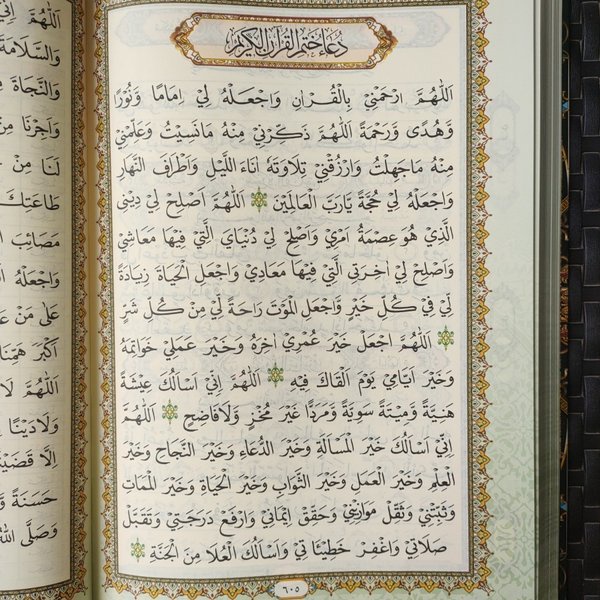 دُعَاءُ خَتْمِ الْقُرْآنِ الْكَرِيمِ
اَللّٰهُمَّ ارْحَمْنِيْ بِالْقُرْاٰنِ وَاجْعَلْهُ لِيْ اِمَامًا وَّنُوْرًا
وَّهُدًى وَّرَحْمَةً اَللّٰهُمَّ ذَكِّرْنِيْ مِنْهُ مَانَسِيْتُ وَعَلِّمْنِيْ
مِنْهُ مَاجَهِلْتُ وَارْزُقْنِيْ تِلَاوَتَهُ اٰنَاءَ اللَّيْلِ وَاَطْرَافَ النَّهَارِ
وَاجْعَلْهُ لِيْ حُجَّةً يَّارَبَّ الْعَالَمِيْنَ اَللّٰهُمَّ اَصْلِحْ لِيْ دِيْنِيَ
الَّذِيْ هُوَ عِصْمَةُ اَمْرِيْ وَاَصْلِحْ لِيْ دُنْيَايَ الَّتِيْ فِيْهَا مَعَاشِيْ
وَاَصْلِحْ لِيْ اٰخِرَتِي الَّتِيْ فِيْهَا مَعَادِيْ وَاجْعَلِ الْحَيَاةَ زِيَادَةً
لِيْ فِيْ كُلِّ خَيْرٍ وَّاجْعَلِ الْمَوْتَ رَاحَةً لِيْ مِنْ كُلِّ شَرٍّ
اَللّٰهُمَّ اجْعَلْ خَيْرَ عُمُرِيْ اٰخِرَهُ وَخَيْرَ عَمَلِيْ خَوَاتِمَهُ
وَخَيْرَ اَيَّامِيْ يَوْمَ اَلْقَاكَ فِيْهِ اَللّٰهُمَّ اِنِّيْ اَسْاَلُكَ عِيْشَةً
هَنِيَّةً وَّمِيْتَةً سَوِيَّةً وَّمَرَدًّا غَيْرَ مُخْزٍ وَّلَافَاضِحٍ اَللّٰهُمَّ
اِنِّيْ اَسْاَلُكَ خَيْرَ الْمَسْاَلَةِ وَخَيْرَ الدُّعَاءِ وَخَيْرَ النَّجَاحِ وَخَيْرَ
الْعِلْمِ وَخَيْرَ الْعَمَلِ وَخَيْرَ الثَّوَابِ وَخَيْرَ الْحَيَاةِ وَخَيْرَ الْمَمَاتِ
وَثَبِّتْنِيْ وَثَقِّلْ مَوَازِيْنِيْ وَحَقِّقْ اِيْمَانِيْ وَارْفَعْ دَرَجَتِيْ وَتَقَبَّلْ
صَلَاتِيْ وَاغْفِرْ خَطِيْئَاتِيْ وَاَسْاَلُكَ الْعُلَا مِنَ الْجَنَّةِ
٦٠٥
اَللّٰهُمَّ اِنِّيْ
وَالسَّلَامَةَ
وَالنَّجَاةَ
وَاَجِرْنَا مِنْ
لَنَا مِنْ
طَاعَتِكَ
مَصَائِبَ
وَاجْعَلْهُ
عَلٰى مَنْ
اَكْبَرَ هَمِّنَا
اَللّٰهُمَّ لَا
وَلَادَيْنًا
اِلَّا قَضَيْتَهَا
حَسَنَةً
وَصَلَّى اللهُ